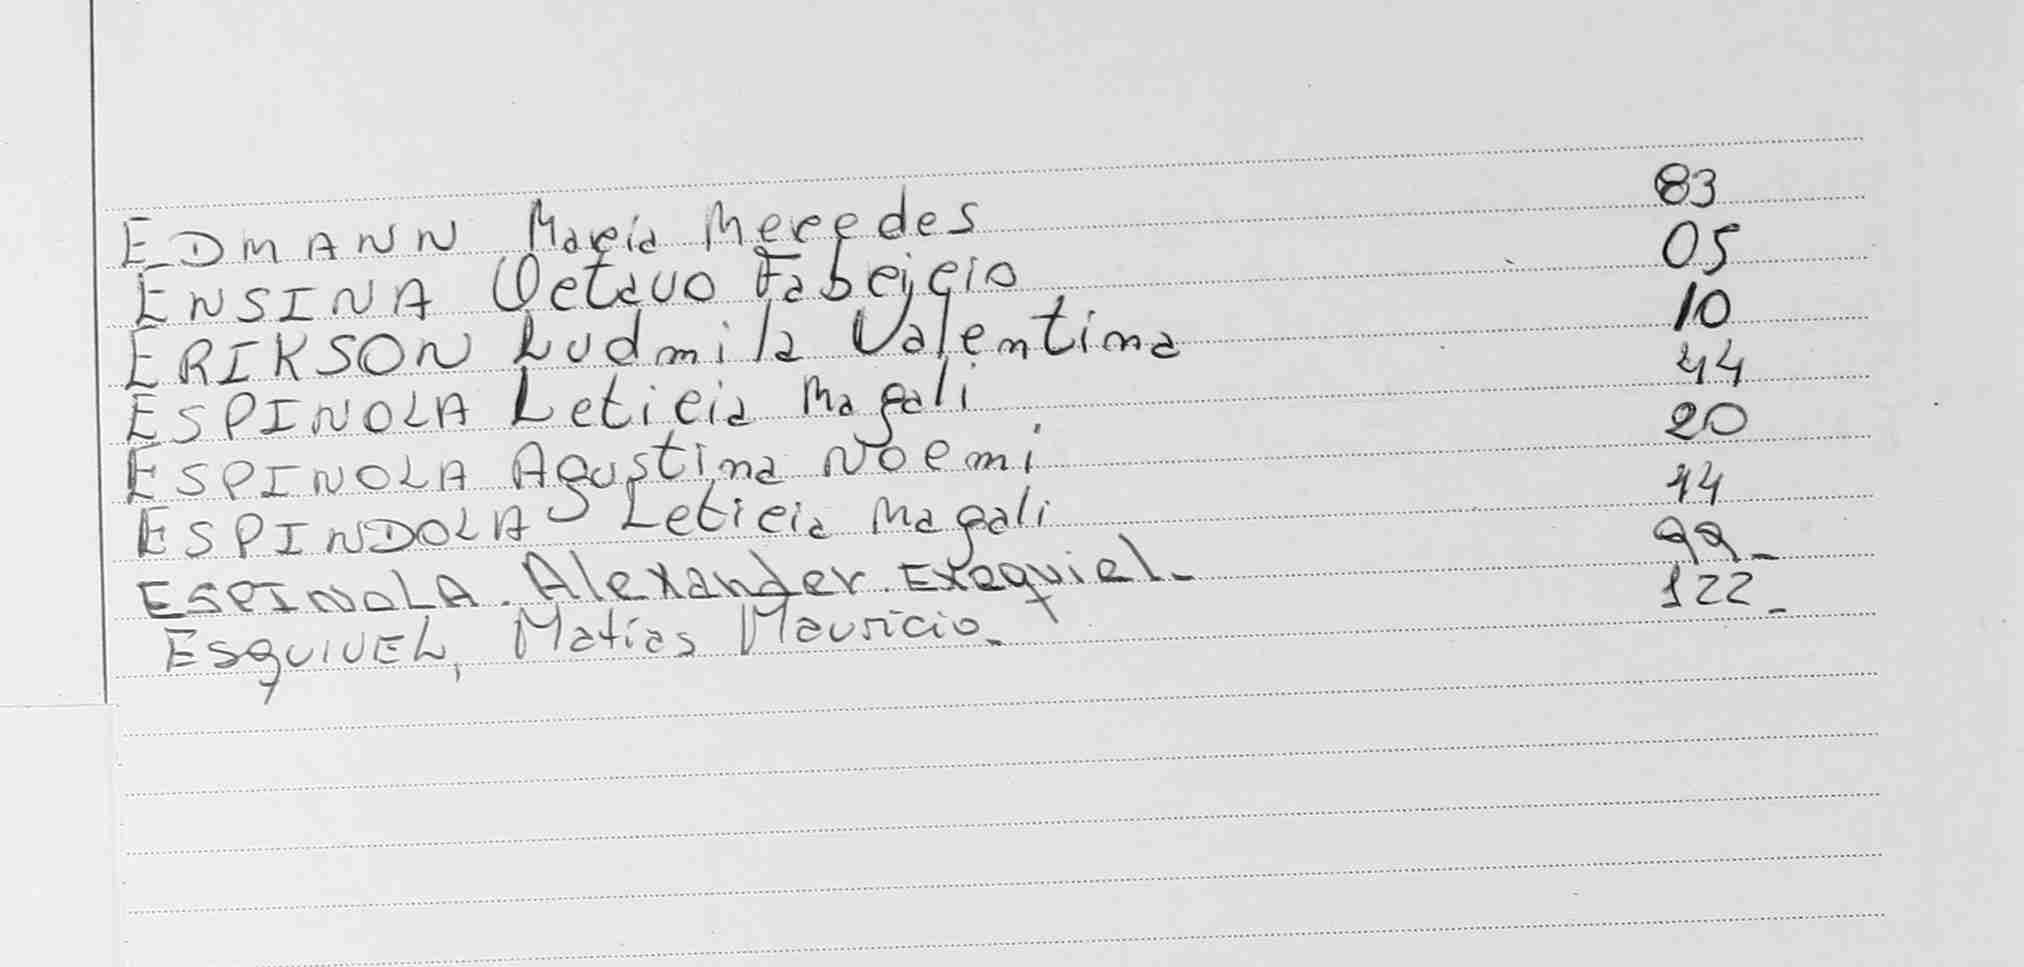 EDMANN Maria Mercedes 83
ENSINA Octavo Fabricio 05
ERIKSON Ludmila Valentina 10
ESPINOLA Leticia Magali 44
ESPINOLA Agustina Noemi 20
ESPINDOLA Leticia Magali 44
ESPINOLA. Alexander. Exequiel- 99-
ESQUIVEL, Matias Mauricio- 122-